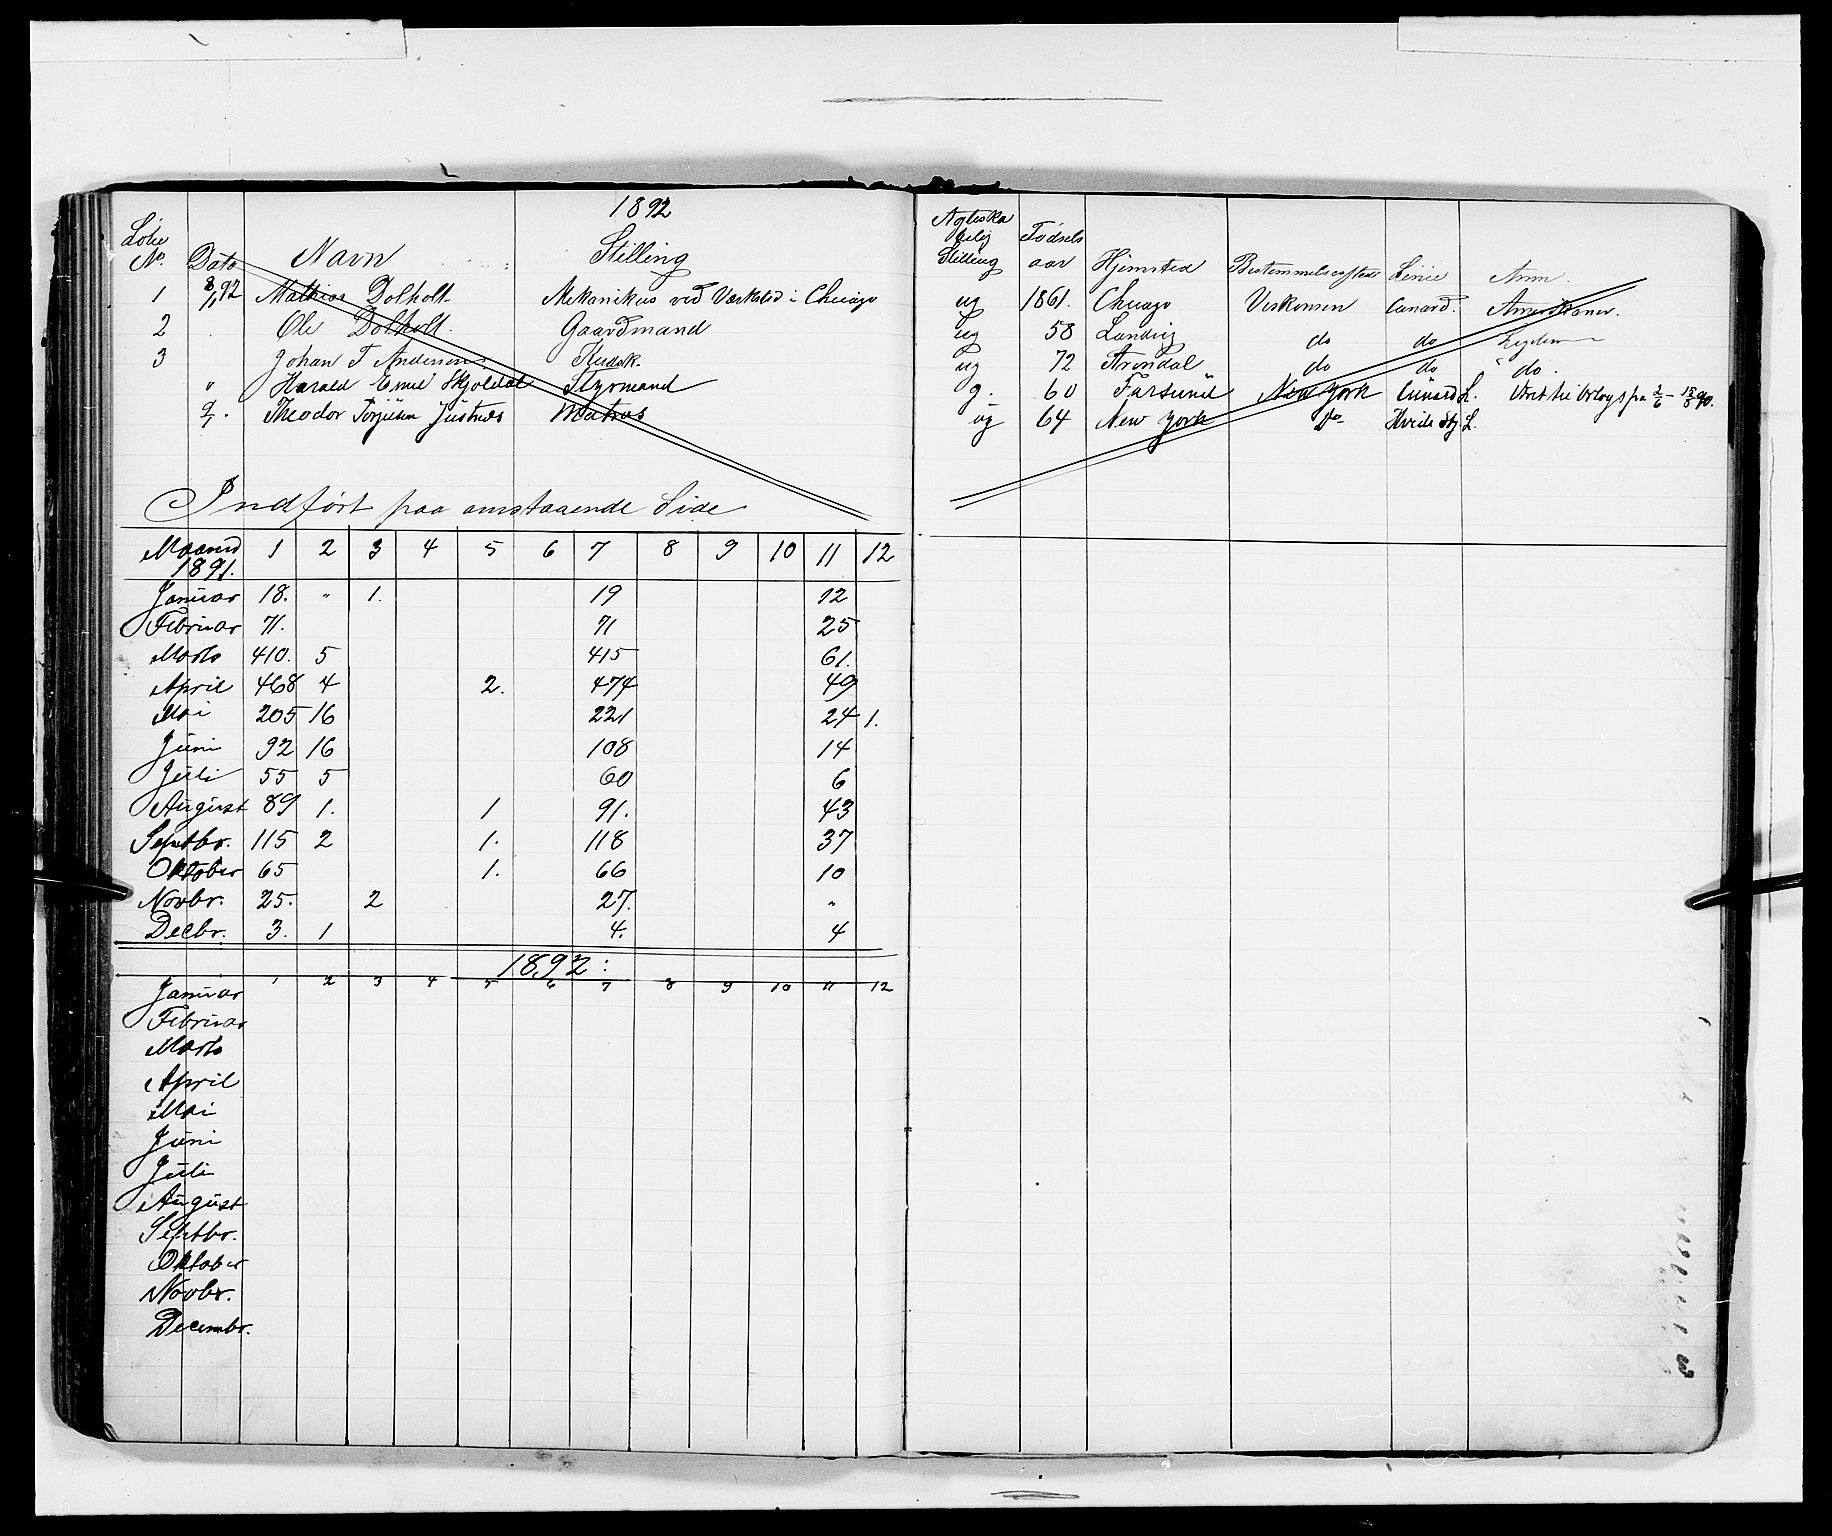 1892
Løbe No. Dato Navn Stilling Ægteskabelig Stilling Fødselsaar Hjemsted Bestemmelsessted Linie Anm.
1 8/1 92 Mathias Dolholt Mekanikus ved Værksted i Chicago ug 1861. Chicago Viskonsin Cunard. Amerikaner.
2 Ole Dolholt. Gaardmand ug 58 Landvig do do
3 Johan T Andersen Kudsk. ug 72 Arendal do do " do.
" Harald Emil Skjoldal Styrmand g. 60 Farsund New York Cunard L. Været til Udlug
Theodor Torjusen Justnes Matros ug 64 New York Do Hvide Stj. L.
Indført paa omstaaende Side
Maaned 1891. 1 2 3 4 5 6 7 8 9 10 11 12
Januar 18. " 1. 19 12
Februar 71. 71 25
Marts 410. 5 415 61.
April 468 4 2. 474 49
Mai 205 16 221 24 1.
Juni 92 16 108 14
Juli 55 5 60 6
August 89 1. 1 91. 43
Septbr. 115 2 1. 118 37
Oktober 65 1. 66 10
Novbr. 25. 2 27. "
Decbr. 3. 1 4. 4
1892:
1 2 3 4 5 6 7 8 9 10 11 12
Januar
Februar
Marts
April
Mai
Juni
Juli
August
Septbr.
Oktober
Novbr.
Decembr.